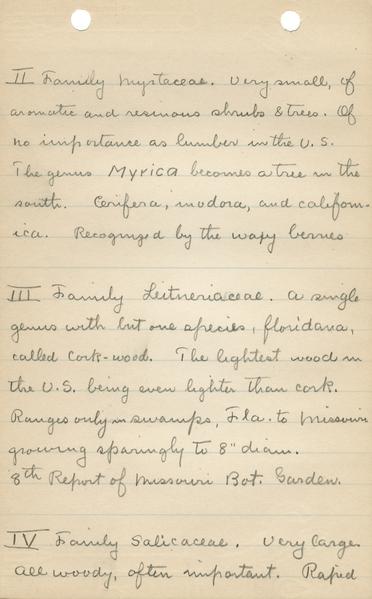 II Family Myricaceae. Very small, of
aromatic and resinous shrubs & trees. Of
no importance as lumber in the U.S.
The genus Myrica becomes a tree in the
south. Cerifera, inodora, and californ-
ica. Recognized by the waxy berries
III Family Leitneriaceae. A single
genus with but one species, floridana,
called Cork-wood. The lightest wood in
the U.S. being even lighter than cork.
Ranges only in swamps, Fla. to Missouri
growing sparingly to 8" diam.
8th Report of Missouri Bot. Garden.
IV Family Salicaceae. Very large.
All woody, often important. Rapid